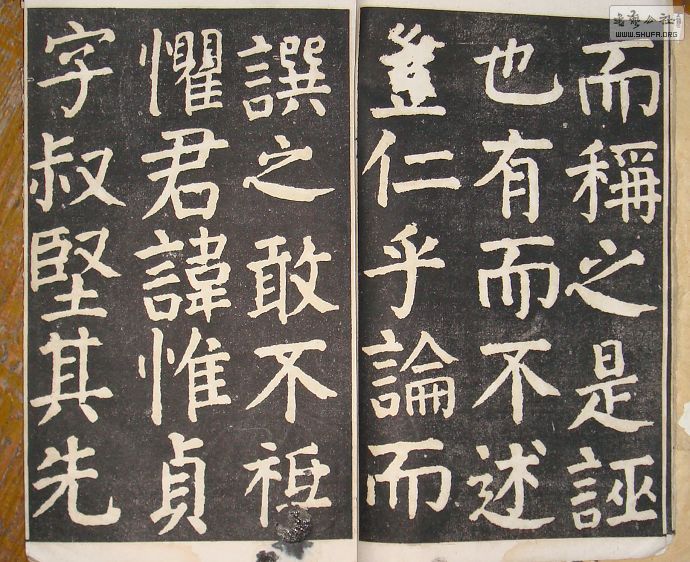 書藝公社
WWW.SHUFA.ORG
而稱之是誣
也有而不述
豈仁乎論而
譔之敢不祗
懼君諱惟貞
字叔堅其先